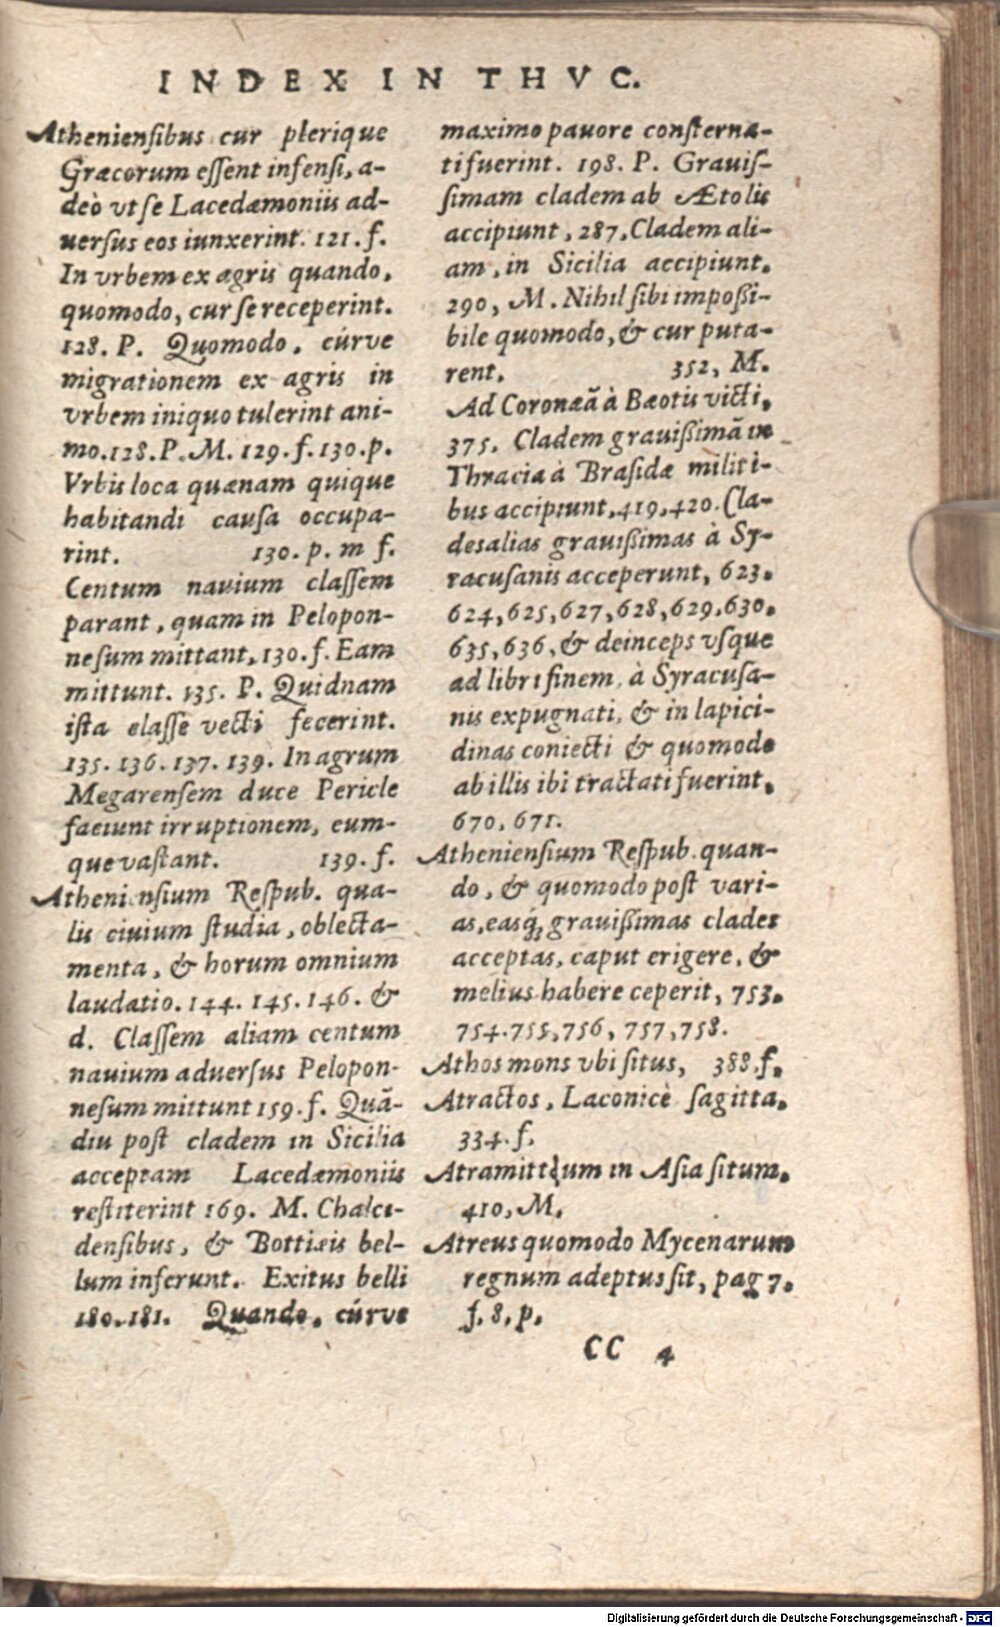 INDEX IN THVC.
Atheniensibus cur plerique
Græcorum essent infensi, a-
deò vt se Lacedæmoniis ad-
uersus eos iunxerint. 121. f.
In vrbem ex agris quando,
quomodo, cur se receperint.
128. P. Quomodo, cúrve
migrationem ex agris in
vrbem iniquo tulerint ani-
mo. 128. P. M. 129. f. 130. p.
Vrbis loca quænam quique
habitandi causa occupa-
rint. 130. p. m f.
Centum nauium classem
parant, quam in Pelopon-
nesum mittant, 130. f. Eam
mittunt. 135. P. Quidnam
ista classe vecti fecerint.
135. 136. 137. 139. In agrum
Megarensem duce Pericle
faciunt irruptionem, eum-
que vastant. 139. f.
Atheniensium Respub. qua-
lis ciuium studia, oblecta-
menta, & horum omnium
laudatio. 144. 145. 146. &
d. Classem aliam centum
nauium aduersus Pelopon-
nesum mittunt 159. f. Quã-
diu post cladem in Sicilia
acceptam Lacedæmoniis
restiterint 169. M. Chalci-
densibus, & Bottiæis bel-
lum inferunt. Exitus belli
180. 181. Quando, cúrve
maximo pauore consterna-
ti fuerint. 198. P. Grauis-
simam cladem ab Ætolis
accipiunt, 287. Cladem ali-
am, in Sicilia accipiunt.
290, M. Nihil sibi impoßi-
bile quomodo, & cur puta-
rent. 352, M.
Ad Coronæã à Bœotis victi,
375. Cladem grauißimã in
Thracia à Brasidæ militi-
bus accipiunt, 419, 420. Cla-
des alias grauißimas à Sy-
racusanis acceperunt, 623.
624, 625, 627, 628, 629, 630.
635, 636, & deinceps vsque
ad libri finem, à Syracusa-
nis expugnati, & in lapici-
dinas coniecti & quomodo
ab illis ibi tractati fuerint,
670, 671.
Atheniensium Respub. quan-
do, & quomodo post vari-
as, easq́; grauißimas clades
acceptas, caput erigere, &
melius habere ceperit, 753.
754. 755, 756, 757, 758.
Athos mons vbi situs, 388. f.
Atractos, Laconicè sagitta.
334. f.
Atramittium in Asia situm.
410, M.
Atreus quomodo Mycenarum
regnum adeptus sit, pag 7.
f. 8, p.
CC 4
Digitalisierung gefördert durch die Deutsche Forschungsgemeinschaft - DFG